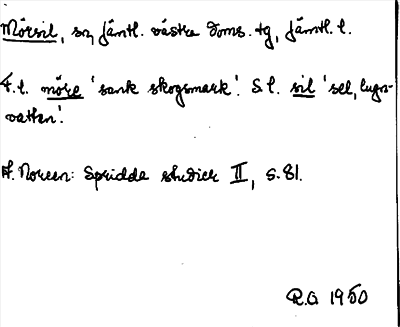 Mörsil, sn, Jämtl. västra doms. tg, Jämtl. l.
F.l. möre 'sank skogsmark'. S.l. sil 'sel, lugn-
vatten'.
A. Noreen: Spridda studier II, s. 81.
R.O. 1950